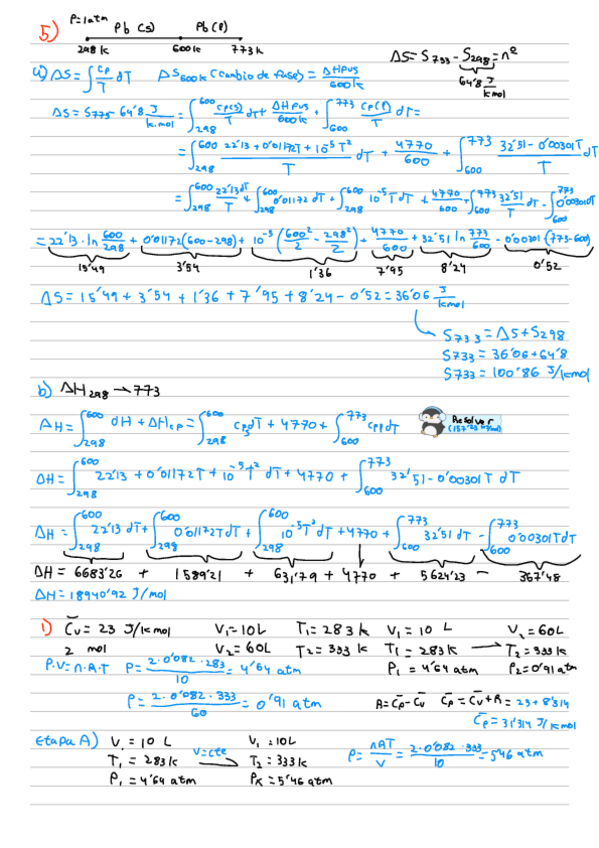 5) P=1atm Pb (s) Pb(l)
298k 600k 773k
ΔS = S733 - S298 = nº
64'8 J/kmol
a) ΔS = ∫ Cp/T dT ΔS600k (cambio de fase) = ΔHfus/600k
ΔS = S775 - 64'8 J/k.mol = ∫298^600 Cp(s)/T dT + ΔHfus/600k + ∫600^773 Cp(l)/T dT =
= ∫298^600 (22'13 + 0'01172T + 10^-5 T²)/T dT + 4770/600 + ∫600^773 (32'51 - 0'00301T)/T dT
= ∫298^600 22'13dT/T + ∫298^600 0'01172 dT + ∫298^600 10^-5 T dT + 4770/600 + ∫600^773 32'51/T dT - ∫600^773 0'00301dT
= 22'13 · ln 600/298 + 0'01172 (600-298) + 10^-5 (600²/2 - 298²/2) + 4770/600 + 32'51 ln 773/600 - 0'00301 (773-600)
15'49 3'54 1'36 7'95 8'24 0'52
ΔS = 15'49 + 3'54 + 1'36 + 7'95 + 8'24 - 0'52 = 36'06 J/kmol
S733 = ΔS + S298
S733 = 36'06 + 64'8
S733 = 100'86 J/kmol
b) ΔH298 → 773
ΔH = ∫298^600 dH + ΔHcp = ∫298^600 Cps dT + 4770 + ∫600^773 Cpl dT
Resolver
ΔH = ∫298^600 22'13 + 0'01172T + 10^-5 T² dT + 4770 + ∫600^773 32'51 - 0'00301T dT
ΔH = ∫298^600 22'13 dT + ∫298^600 0'01172T dT + ∫298^600 10^-5 T² dT + 4770 + ∫600^773 32'51 dT - ∫600^773 0'00301T dT
ΔH = 6683'26 + 1589'21 + 631'79 + 4770 + 5624'23 - 367'48
ΔH = 18940'92 J/mol
1) C̄v = 23 J/kmol V1 = 10L T1 = 283k V1 = 10 L V2 = 60L
2 mol V2 = 60L T2 = 333k T1 = 283k → T2 = 333k
P1 = 4'64 atm P2 = 0'91 atm
P.V = n.R.T P = 2·0'082·283/10 = 4'64 atm
P = 2·0'082·333/60 = 0'91 atm
R = C̄p - C̄v C̄p = C̄v + R = 23 + 8'314
C̄p = 31'314 J/kmol
Etapa A) V1 = 10 L V1 = 10L
T1 = 283k V=cte → T2 = 333k
P1 = 4'64 atm Px = 5'46 atm
P = nRT/V = 2·0'082·333/10 = 5'46 atm